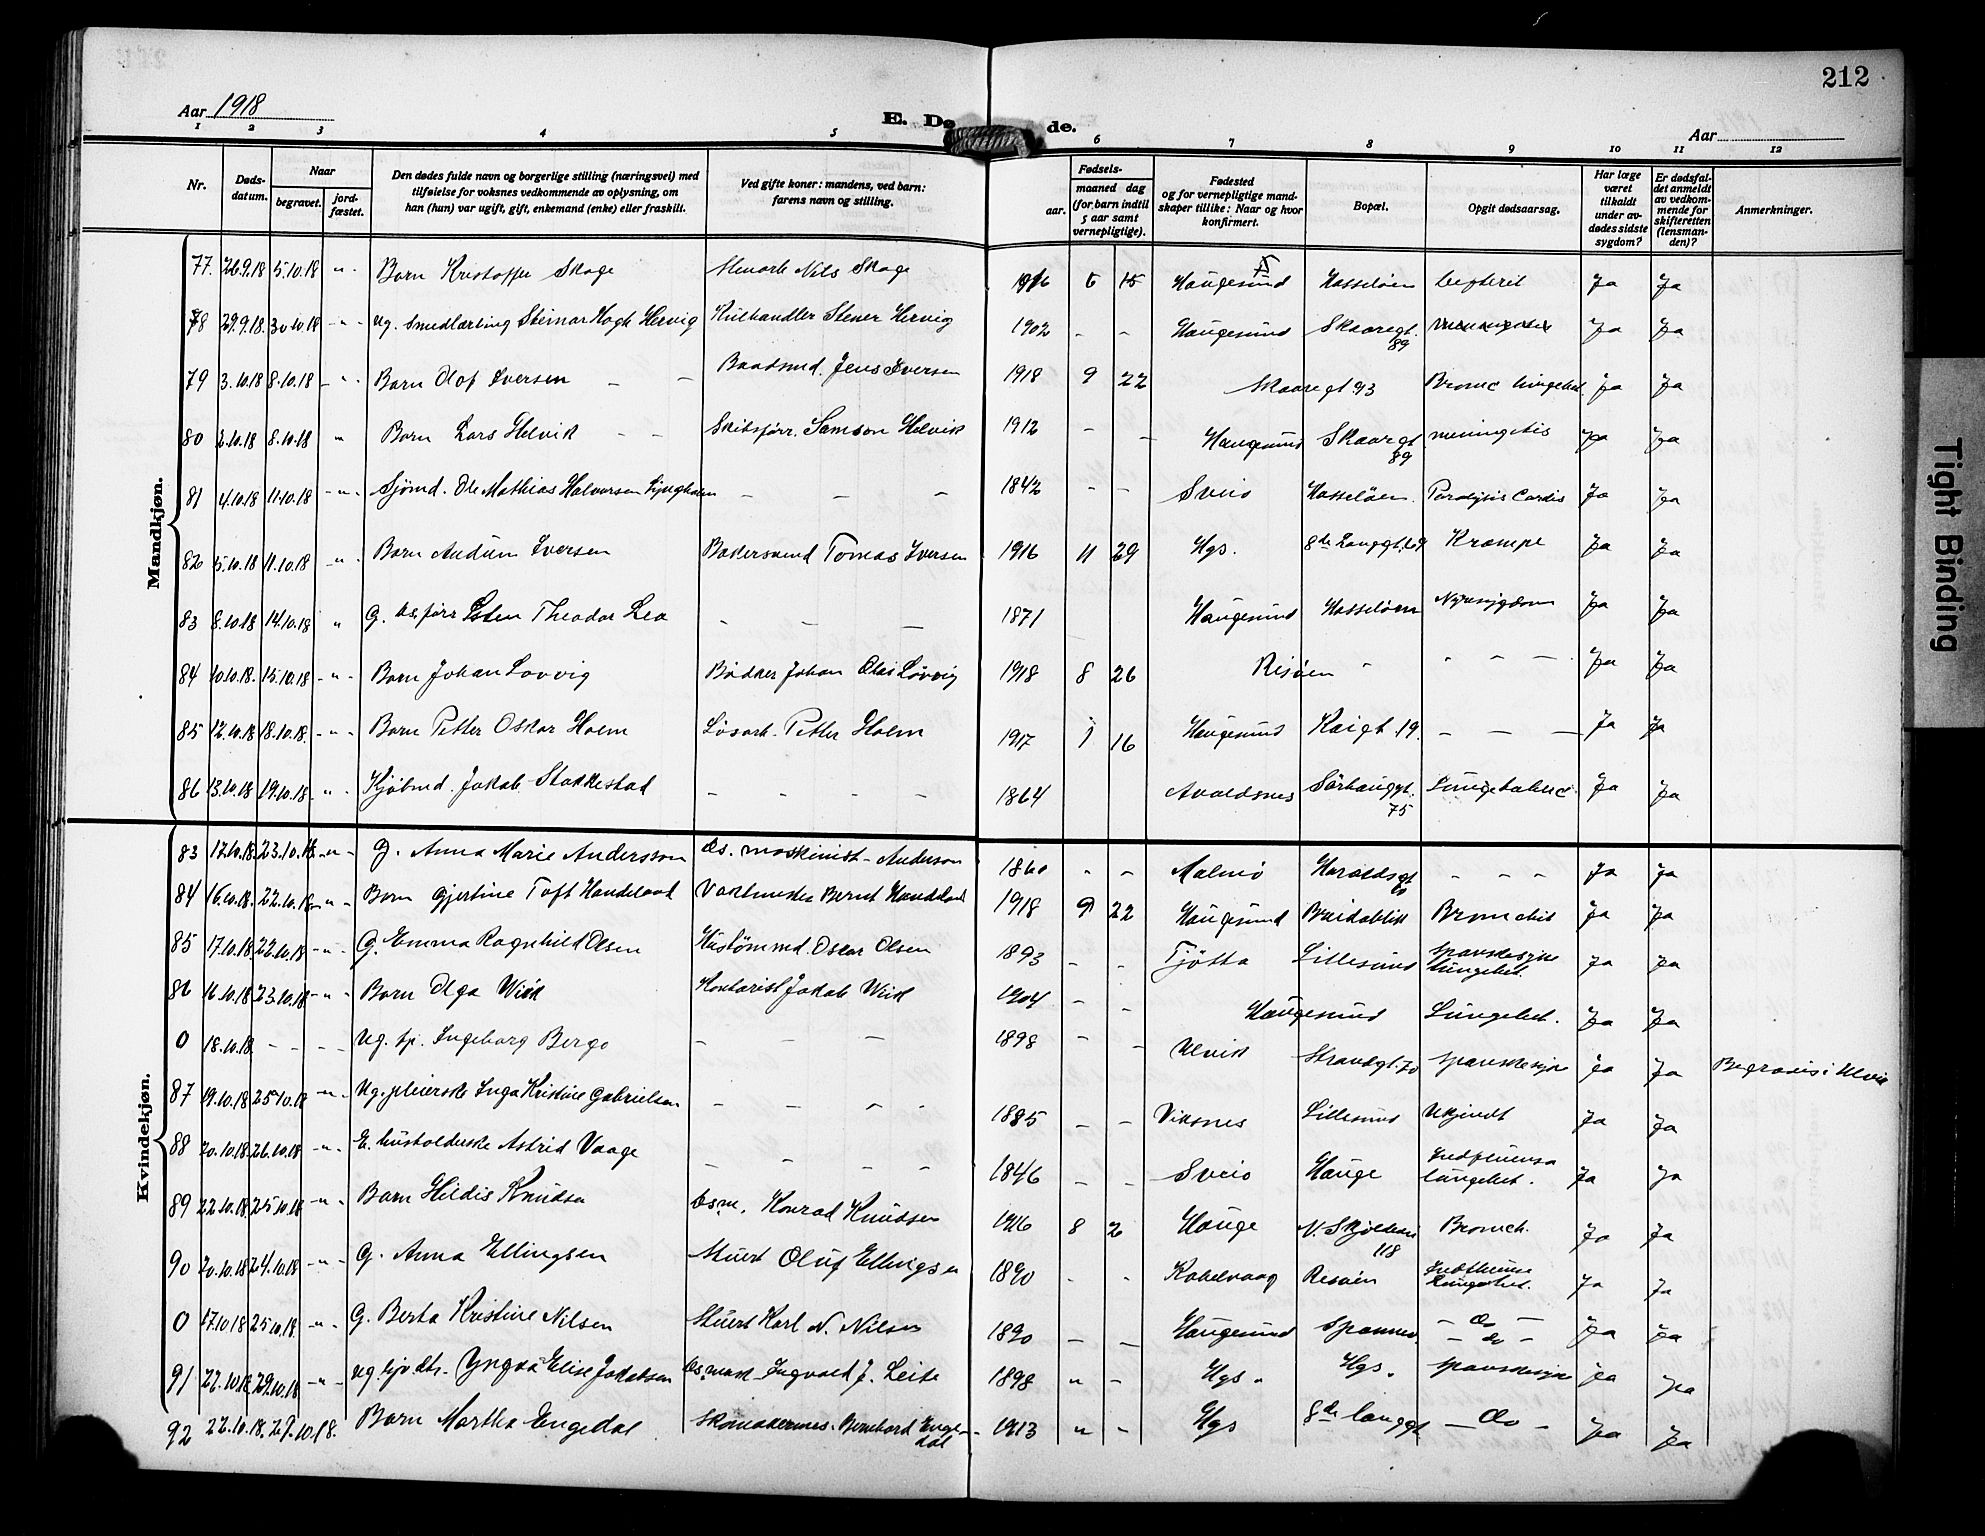 212
Aar 1918
E. Dø de.
Aar
1 2 3 4 5 6 7 8 9 10 11 12
Nr.
Døds-datum.
Naar
begravet.
jord-fæstet.
Den dødes fulde navn og borgerlige stilling (næringsvei) med
tilføielse for voksnes vedkommende av oplysning, om
han (hun) var ugift, gift, enkemand (enke) eller fraskilt.
Ved gifte koner: mandens, ved barn:
farens navn og stilling.
Fødsels-
aar.
maaned dag
(for barn indtil
5 aar samt
vernepligtige).
Fødested
og for vernepligtige mand-
skaper tillike: Naar og hvor
konfirmert.
Bopæl.
Opgit dødsaarsag.
Har læge
været
tilkaldt
under av-
dødes sidste
sygdom?
Er dødsfal-
det anmeldt
av vedkom-
mende for
skifteretten
(lensman-
den)?
Anmerkninger.
Mandkjøn.
77. 26.9.18 5.10.18 -"- Barn Kristoffer Skage Nils Skage 1916 6 15 Haugesund Hasseløen Ja Ja
78 29.9.18. 30.10.18 -"- Ug. Smedlærling Steinar Hagb Hervig Kulhandler Stener Hervig 1902 - - Haugesund Skaaregt. 89 Ja Ja
79 3.10.18 8.10.18 -"- Barn Olof Iversen - - Baadsmd. Jens Iversen 1918 9 22 Skaaregt 93 Bronc lungebet. Ja Ja
80 2.10.18 8.10.18 " Barn Lars Helvik - - Skibsførr. Samson Helvik 1912 - - Haugesund Skaaregt 89 meningitis Ja Ja
81 4.10.18 11.10.18 -"- Sjømd. Ole Mathias Halvorsen Lyngholm - - - 1842 - - Sveio Hasseløen Paralysis Cordis Ja Ja
82 5.10.18 11.10.18 -"- Barn Audun Iversen Bakersvend Tomas Iversen 1916 11 29 Hgs. 8de Langgt. 69 Krampe Ja Ja
83 8.10.18 14.10.18 " G. Ds.førr Sten Theodor Lea - - - 1871 Haugesund Hasseløen Nyresygdom Ja Ja
84 10.10.18. 15.10.18 -"- Barn Johan Lovvig Bødker Johan Olai Løvvig 1918 8 26 Risøen - - - - Ja Ja
85 12.10.18 18.10.18. -"- Barn Petter Oskar Holm Løsarb. Petter Holm 1917 1 16 Haugesund Kaigt. 19. - - - Ja Ja
86 13.10.18 19.10.18. -"- Kjøbmd. Jakob Stakkestad - - - - 1864 Avaldsnes Sørhauggt. 75 Lungebetænd. Ja Ja
Kvindekjøn.
83 17.10.18. 23.10.18 -"- G. Anna Marie Andersson Ds. maskinist - Anderson 1860 - - Malmö Haraldsgt - - - Ja Ja
84 16.10.18. 22.10.18 -"- Barn Gjertine Toft Handeland Vaktmester Bernt Handeland 1918 9 22 Haugesund Breidablik Bronchit Ja Ja
85 17.10.18. 22.10.18 -"- G. Emma Ragnhild Olsen Hustømmd. Oscar Olsen 1893 - - Tjøtta Lillesund Spanskesyke lungebet. Ja Ja
86 16.10.18 23.10.18 -"- Barn Olga Wiik Kontorist Jakob Wiik 1904 - - Haugesund Lungebet. Ja Ja
0 18.10.18. - - - - Ug. tp. Ingeborg Bergo - - - 1898 - - Ulvik Strandgt. 70 Spanskesyke Ja Ja Begraves i Ulvik
87 19.10.18 25.10.18 -"- Ug. pleierske Inga Kristine Gabrielsen - - - - 1885 - - Viksnes Lillesund Ukjendt Ja Ja
88 20.10.18. 26.10.18 -"- E. husholderske Astrid Vaage - - - - 1846 - - Sveio Hauge Indfluensa lungebet. Ja Ja
89 22.10.18. 25.10.18 -"- Barn Hildis Knudsen Dsm. Konrad Knudsen 1916 8 2 Hauge N. Skjoldavei 118 Bronch. Ja Ja
90 20.10.18 24.10.18 -"- G. Anna Ellingsen Stuert Oluf Ellingsen 1890 - - Kabelvaag Risøen Indfluense Lungebet. Ja Ja
0 17.10.18 25.10.18 -"- G. Berta Kristine Nilsen Stuert Karl N. Nilsen 1890 - - Haugesund Spannav. - Do - - do - Ja Ja
91 22.10.18. 29.10.18 -"- Ug. Yngva Elise Jakobsen Ds.mask. Ingvald J. Leite 1898 " - Hgs. Hgs. Spanskesyke Ja Ja
92 22.10.18. 29.10.18. Barn Martha Engedal Skomakermes. Bernhard Engedal - 1913 " - Hgs 8de langgt - Do - Ja Ja
Tight Binding